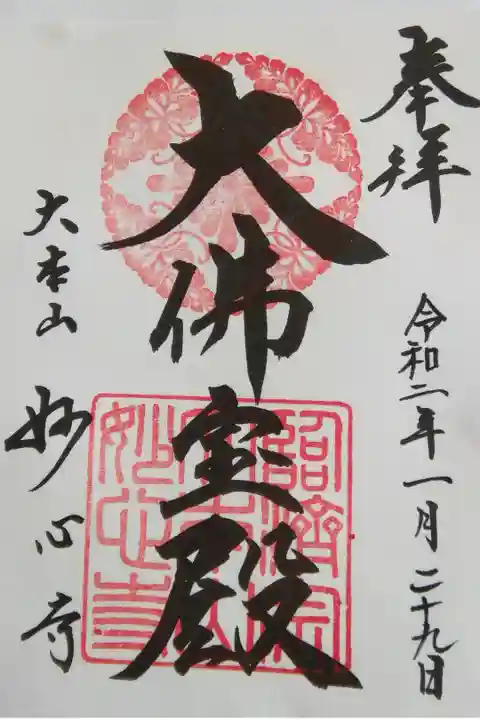 奉拝
令和二年一月二十九日
大佛宝殿
大本山 妙心寺
臨濟宗
妙心寺